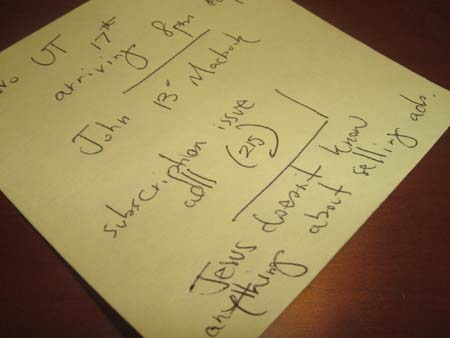 UT 17th
arriving 8pm
John 13" Macbook
subscription issue
(25)
Jesus doesn't know
anything about selling ads.